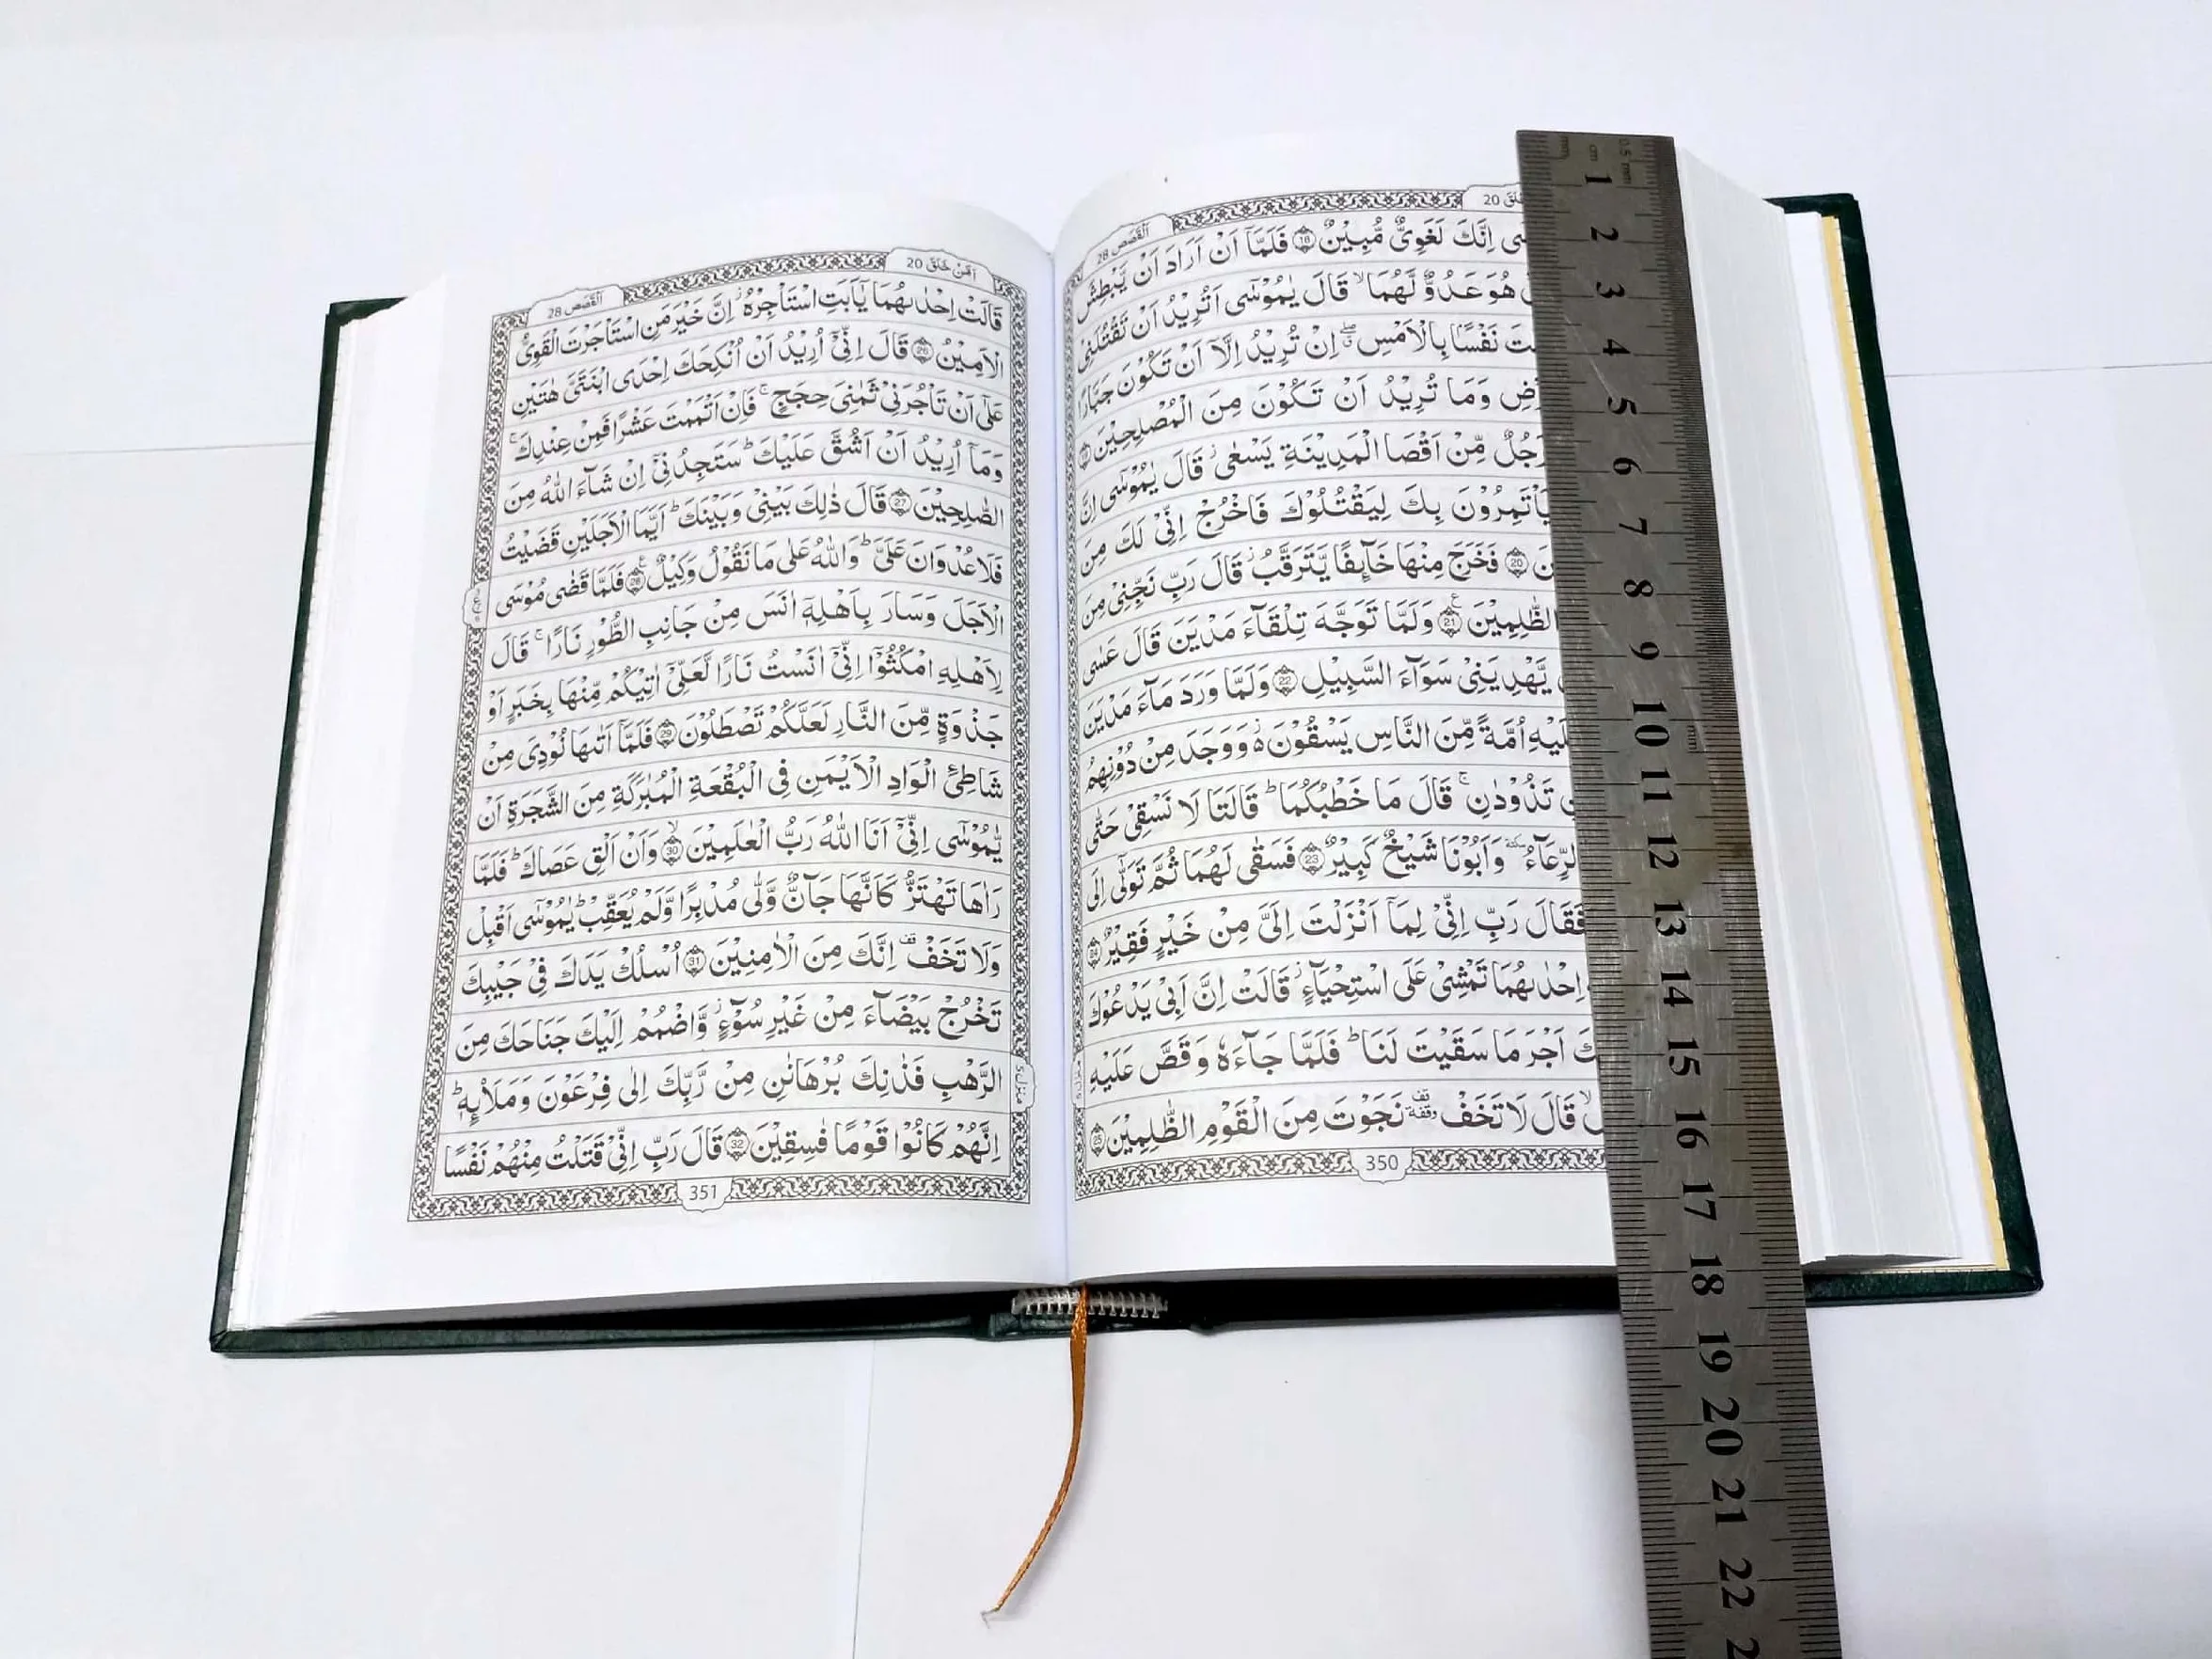 اَلْقَصَص 28
20
ىِ اِنَّكَ لَغَوِىٌّ مُّبِيْنٌ 18 فَلَمَّآ اَنْ اَرَادَ اَنْ يَّبْطِشَ
هُوَ عَدُوٌّ لَّهُمَا ۙ قَالَ يٰمُوْسٰٓى اَتُرِيْدُ اَنْ تَقْتُلَنِىْ
نَفْسًۢا بِالْاَمْسِ ۖ اِنْ تُرِيْدُ اِلَّآ اَنْ تَكُوْنَ جَبَّارًا
وَمَا تُرِيْدُ اَنْ تَكُوْنَ مِنَ الْمُصْلِحِيْنَ 19
رَجُلٌ مِّنْ اَقْصَا الْمَدِيْنَةِ يَسْعٰى ۫ قَالَ يٰمُوْسٰٓى اِنَّ
يَاْتَمِرُوْنَ بِكَ لِيَقْتُلُوْكَ فَاخْرُجْ اِنِّىْ لَكَ مِنَ
20 فَخَرَجَ مِنْهَا خَآئِفًا يَّتَرَقَّبُ ۫ قَالَ رَبِّ نَجِّنِىْ مِنَ
الظّٰلِمِيْنَ 21 وَلَمَّا تَوَجَّهَ تِلْقَآءَ مَدْيَنَ قَالَ عَسٰى
يَّهْدِيَنِىْ سَوَآءَ السَّبِيْلِ 22 وَلَمَّا وَرَدَ مَآءَ مَدْيَنَ
اُمَّةً مِّنَ النَّاسِ يَسْقُوْنَ ۫ وَوَجَدَ مِنْ دُوْنِهِمُ
تَذُوْدٰنِ ۚ قَالَ مَا خَطْبُكُمَا ؕ قَالَتَا لَا نَسْقِىْ حَتّٰى
الرِّعَآءُ ٚ وَاَبُوْنَا شَيْخٌ كَبِيْرٌ 23 فَسَقٰى لَهُمَا ثُمَّ تَوَلّٰٓى اِلَى
فَقَالَ رَبِّ اِنِّىْ لِمَآ اَنْزَلْتَ اِلَىَّ مِنْ خَيْرٍ فَقِيْرٌ 24
اِحْدٰىهُمَا تَمْشِىْ عَلَى اسْتِحْيَآءٍ ۫ قَالَتْ اِنَّ اَبِىْ يَدْعُوْكَ
اَجْرَ مَا سَقَيْتَ لَنَا ؕ فَلَمَّا جَآءَهٗ وَقَصَّ عَلَيْهِ
قَالَ لَا تَخَفْ ۥقف وقفة نَجَوْتَ مِنَ الْقَوْمِ الظّٰلِمِيْنَ 25
350
اَلْقَصَص 28
اَمَّنْ خَلَقَ 20
قَالَتْ اِحْدٰىهُمَا يٰٓاَبَتِ اسْتَاْجِرْهُ ۫ اِنَّ خَيْرَ مَنِ اسْتَاْجَرْتَ الْقَوِىُّ
الْاَمِيْنُ 26 قَالَ اِنِّىْٓ اُرِيْدُ اَنْ اُنْكِحَكَ اِحْدَى ابْنَتَىَّ هٰتَيْنِ
عَلٰٓى اَنْ تَاْجُرَنِىْ ثَمٰنِىَ حِجَجٍ ۚ فَاِنْ اَتْمَمْتَ عَشْرًا فَمِنْ عِنْدِكَ ۚ
وَمَآ اُرِيْدُ اَنْ اَشُقَّ عَلَيْكَ ؕ سَتَجِدُنِىْٓ اِنْ شَآءَ اللّٰهُ مِنَ
الصّٰلِحِيْنَ 27 قَالَ ذٰلِكَ بَيْنِىْ وَبَيْنَكَ ؕ اَيَّمَا الْاَجَلَيْنِ قَضَيْتُ
فَلَا عُدْوَانَ عَلَىَّ ؕ وَاللّٰهُ عَلٰى مَا نَقُوْلُ وَكِيْلٌ 28 ع فَلَمَّا قَضٰى مُوْسَى
الْاَجَلَ وَسَارَ بِاَهْلِهٖٓ اٰنَسَ مِنْ جَانِبِ الطُّوْرِ نَارًا ۚ قَالَ
لِاَهْلِهِ امْكُثُوْٓا اِنِّىْٓ اٰنَسْتُ نَارًا لَّعَلِّىْٓ اٰتِيْكُمْ مِّنْهَا بِخَبَرٍ اَوْ
جَذْوَةٍ مِّنَ النَّارِ لَعَلَّكُمْ تَصْطَلُوْنَ 29 فَلَمَّآ اَتٰىهَا نُوْدِىَ مِنْ
شَاطِئِ الْوَادِ الْاَيْمَنِ فِى الْبُقْعَةِ الْمُبٰرَكَةِ مِنَ الشَّجَرَةِ اَنْ
يّٰمُوْسٰٓى اِنِّىْٓ اَنَا اللّٰهُ رَبُّ الْعٰلَمِيْنَ 30 ۙ وَاَنْ اَلْقِ عَصَاكَ ؕ فَلَمَّا
رَاٰهَا تَهْتَزُّ كَاَنَّهَا جَآنٌّ وَّلّٰى مُدْبِرًا وَّلَمْ يُعَقِّبْ ؕ يٰمُوْسٰٓى اَقْبِلْ
وَلَا تَخَفْ ۣقف اِنَّكَ مِنَ الْاٰمِنِيْنَ 31 اُسْلُكْ يَدَكَ فِىْ جَيْبِكَ
تَخْرُجْ بَيْضَآءَ مِنْ غَيْرِ سُوْٓءٍ ۫ وَّاضْمُمْ اِلَيْكَ جَنَاحَكَ مِنَ
الرَّهْبِ فَذٰنِكَ بُرْهَانٰنِ مِنْ رَّبِّكَ اِلٰى فِرْعَوْنَ وَمَلَا۟ئِهٖ ؕ
اِنَّهُمْ كَانُوْا قَوْمًا فٰسِقِيْنَ 32 قَالَ رَبِّ اِنِّىْ قَتَلْتُ مِنْهُمْ نَفْسًا
منزل ٥
351
mm
cm
0.5 mm
1
2
3
4
5
6
7
8
9
10
mm
11
12
13
14
15
16
17
18
19
20
21
22